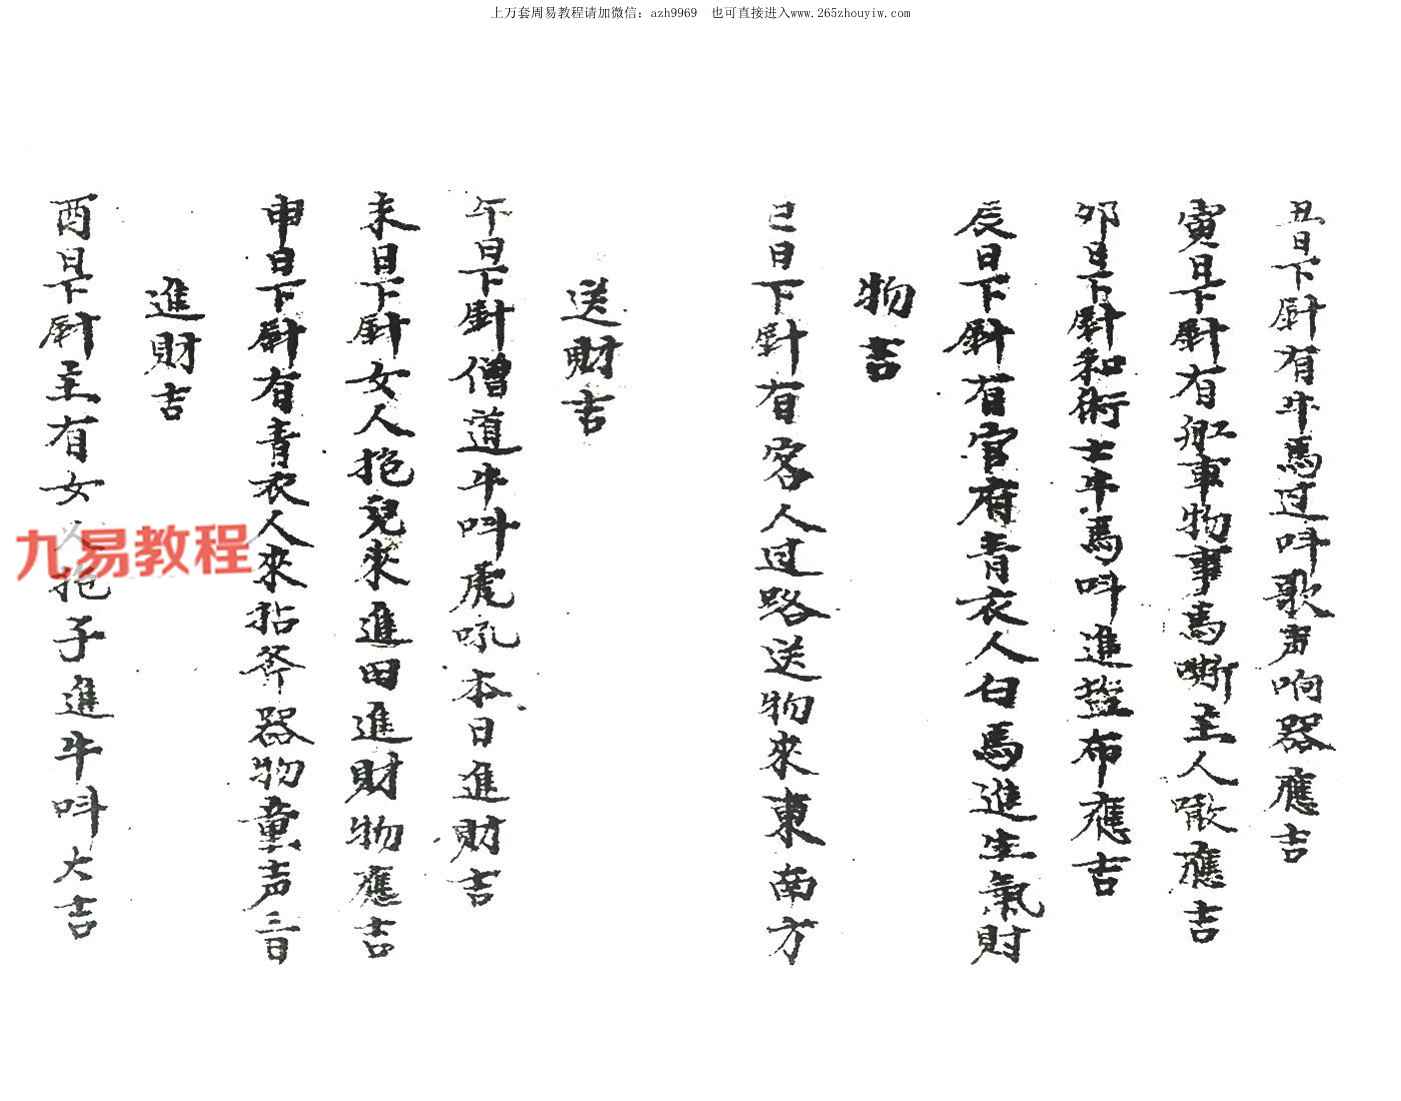 上万套周易教程请加微信：azh9969 也可直接进入www.265zhouyiw.com
丑日下尉有牛馬过呌歌声响器應吉
寅日下尉有舡車物事馬嘶主人噉應吉
卯日下尉和術士牛馬呌進盐布應吉
辰日下尉有官府青衣人白馬進生氣財
物吉
巳日下尉有客人过路送物來東南方
送財吉
午日下尉僧道牛呌虎吼本日進財吉
未日下尉女人抱兒來進田進財物應吉
申日下尉有青衣人來拈斧器物童声三日
進財吉
酉日下尉主有女人抱子進牛呌大吉
九易教程